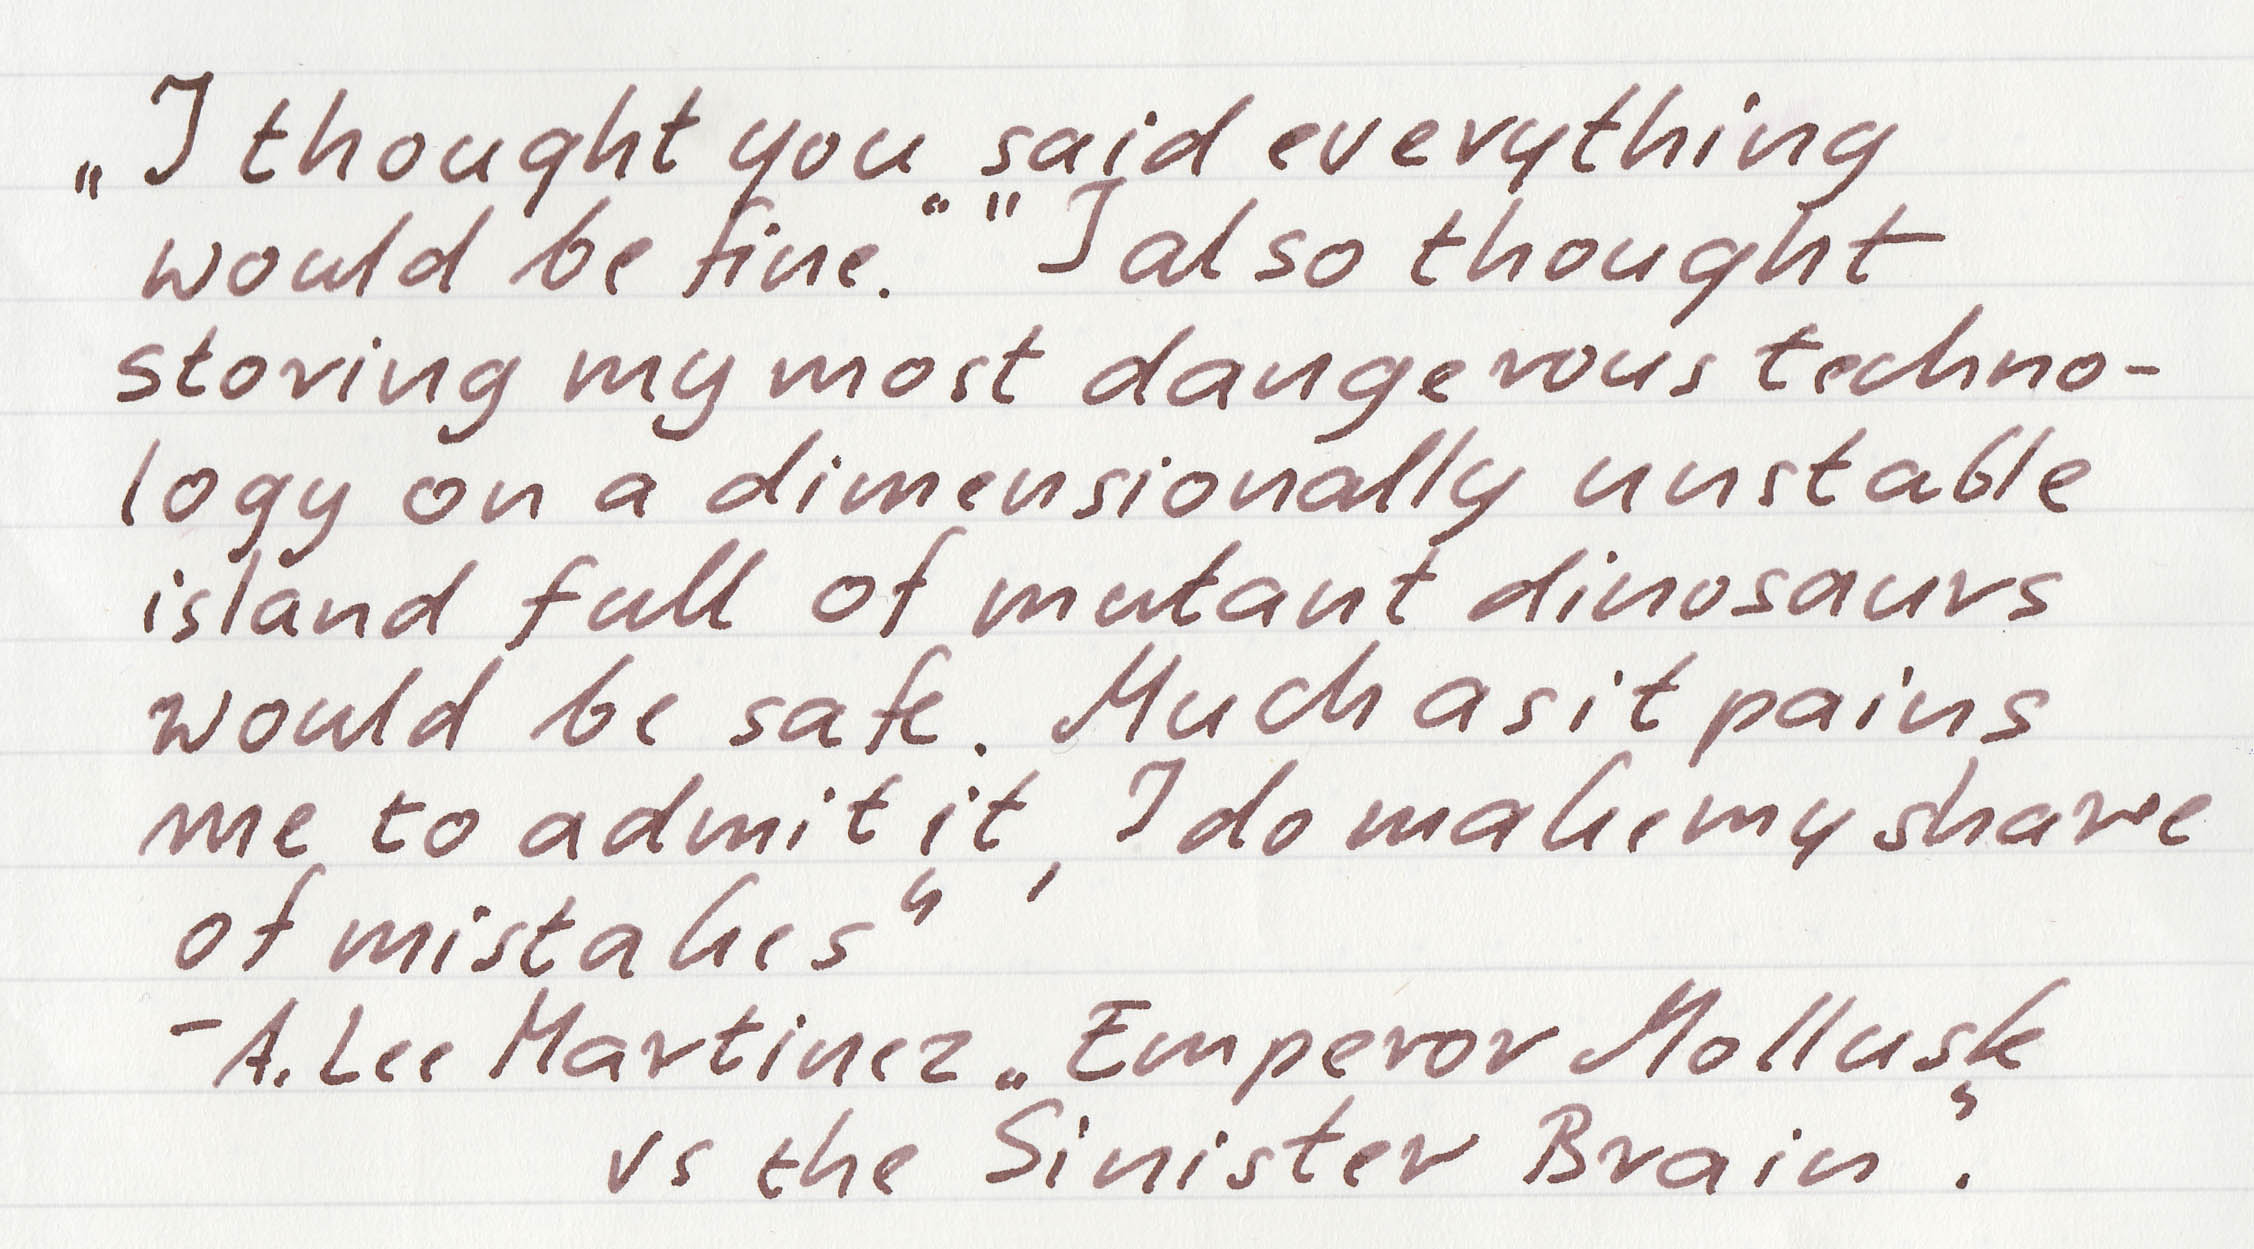 „I thought you said everything
would be fine.“ "I also thought
storing my most dangerous techno-
logy on a dimensionally unstable
island full of mutant dinosaurs
would be safe. Much as it pains
me to admit it, I do make my share
of mistakes“
- A. Lee Martinez „Emperor Mollusk
vs the Sinister Brain“.